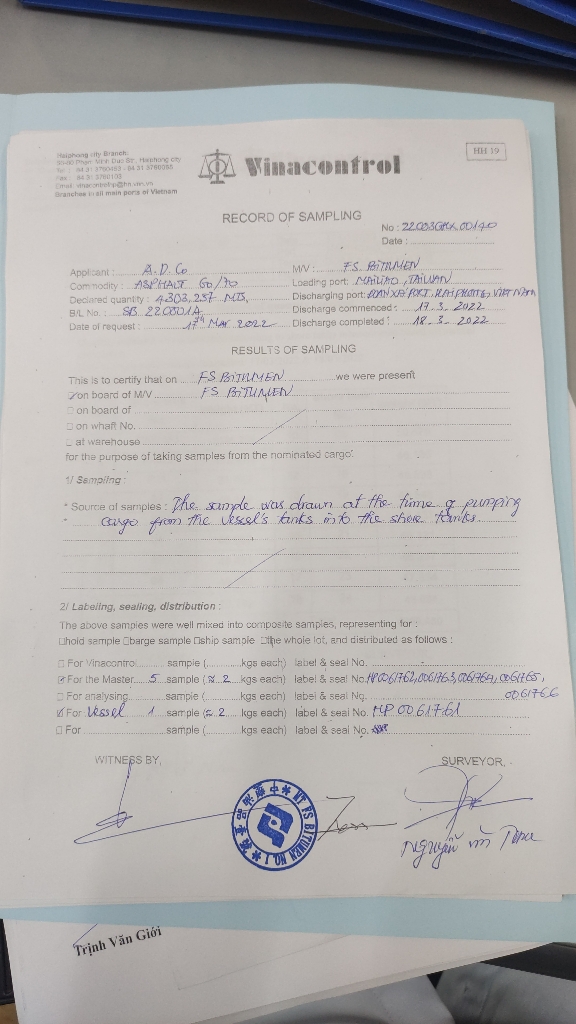 Haiphong city Branch:
Branches in all main ports of Vietnam
Vinacontrol
HH 19
RECORD OF SAMPLING
No :
Date :
Applicant : A.D.Co
M/V : FS. BITUMEN
Commodity : ASPHALT 60/70
Loading port: MAILIAO, TAIWAN
Declared quantity : 4303,237 MTS,
Discharging port:
B/L No. : SB. 220301A
Discharge commenced : 17.3.2022
Date of request : 17th Mar 2022
Discharge completed : 18.3.2022
RESULTS OF SAMPLING
This is to certify that on FS BITUMEN we were present
on board of M/V FS BITUMEN
on board of
on whaft No.
at warehouse
for the purpose of taking samples from the nominated cargo.
1/ Sampling :
* Source of samples : The sample was drawn at the time of pumping
cargo from the vessel's tanks into the shore tanks.
2/ Labeling, sealing, distribution :
The above samples were well mixed into composite samples, representing for :
hold sample barge sample ship sample the whole lot, and distributed as follows :
For Vinacontrol sample ( kgs each) label & seal No.
For the Master 5 sample (≈ 2 kgs each) label & seal No. 0061762, 0061763, 0061764, 0061765,
For analysing sample ( kgs each) label & seal No. 0061766
For Vessel 1 sample (≈ 2 kgs each) label & seal No. HP 0061761
For sample ( kgs each) label & seal No.
WITNESS BY,
SURVEYOR,
MT FS BITUMEN NO.1
Trịnh Văn Giới